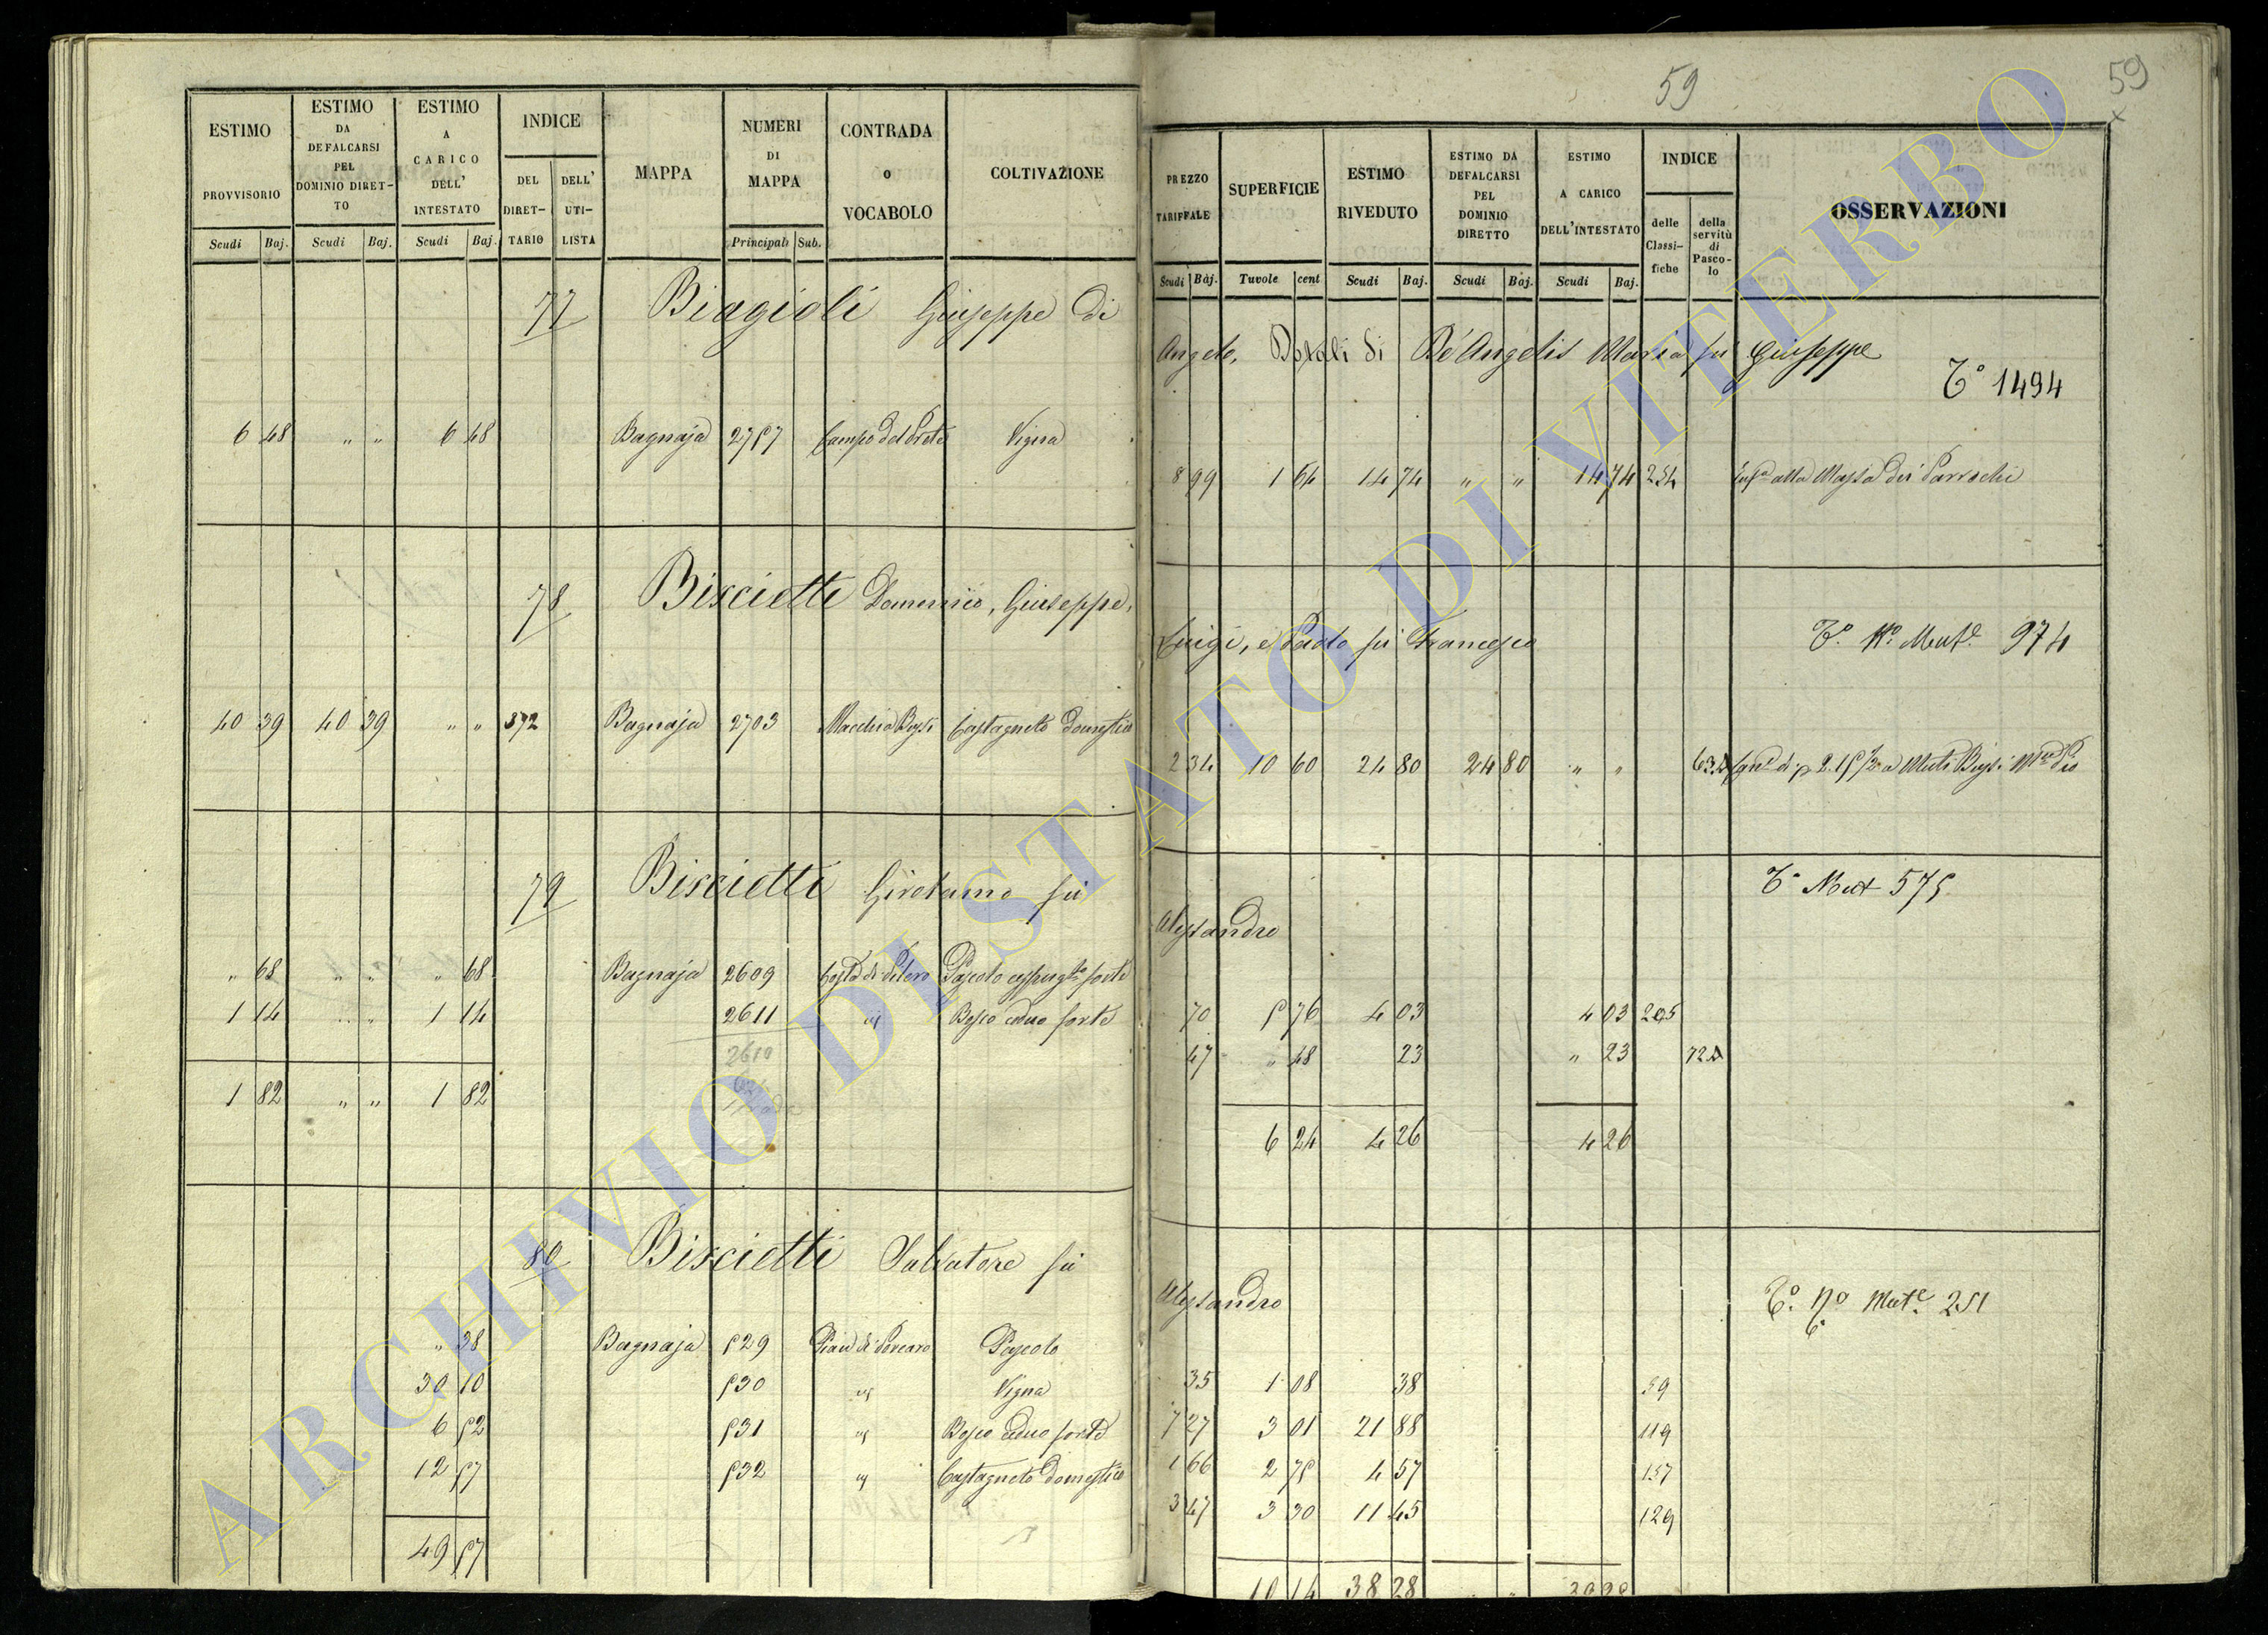 59
59
ESTIMO PROVVISORIO Scudi Baj.
ESTIMO DA DEFALCARSI PEL DOMINIO DIRET-TO Scudi Baj.
ESTIMO A CARICO DELL' INTESTATO Scudi Baj.
INDICE DEL DIRET-TARIO DELL' UTI-LISTA
MAPPA
NUMERI DI MAPPA Principali Sub.
CONTRADA o VOCABOLO
COLTIVAZIONE
PREZZO TARIFFALE Scudi Baj.
SUPERFICIE Tavole cent
ESTIMO RIVEDUTO Scudi Baj.
ESTIMO DA DEFALCARSI PEL DOMINIO DIRETTO Scudi Baj.
ESTIMO A CARICO DELL'INTESTATO Scudi Baj.
INDICE delle Classi-fiche della servitù di Pasco-lo
OSSERVAZIONI
77 Biagioli Giuseppe di
Angelo, Dotali di De Angelis Maria fu Giuseppe
T° 1494
6 48 " " 6 48 Bagnaja 2757 Campo del Prete Vigna
8 99 1 64 14 74 " " 14 74 254 alla Massa dei Parrochi
78 Biscietti Domenico, Giuseppe,
Luigi, e Paolo fu Francesco
T° N° Mut.e 974
40 39 40 39 " " 372 Bagnaja 2703 Macchia Bussi Castagneto domestico
2 34 10 60 24 80 24 80 " "
79 Biscietti Girolamo fu
Alessandro
T° Mut 575
" 68 " " " 68 Bagnaja 2609 Pascolo forte
1 14 " " 1 14 2611 Bosco ceduo forte
2610
1 82 " " 1 82
70 5 76 4 03 4 03 205
47 " 48 23 " 23 72
6 24 4 26 4 26
80 Biscietti Salvatore fu
Alessandro
T° N° Mut.e 251
" 38 Bagnaja 529 Pian di Porcaro Pascolo
30 10 530 Vigna
6 52 531 Bosco ceduo forte
12 57 532 Castagneto domestico
49 57
35 1 08 38 59
7 27 3 01 21 88 119
1 66 2 75 4 57 157
3 47 3 30 11 45 129
10 14 38 28
ARCHIVIO DI STATO DI VITERBO